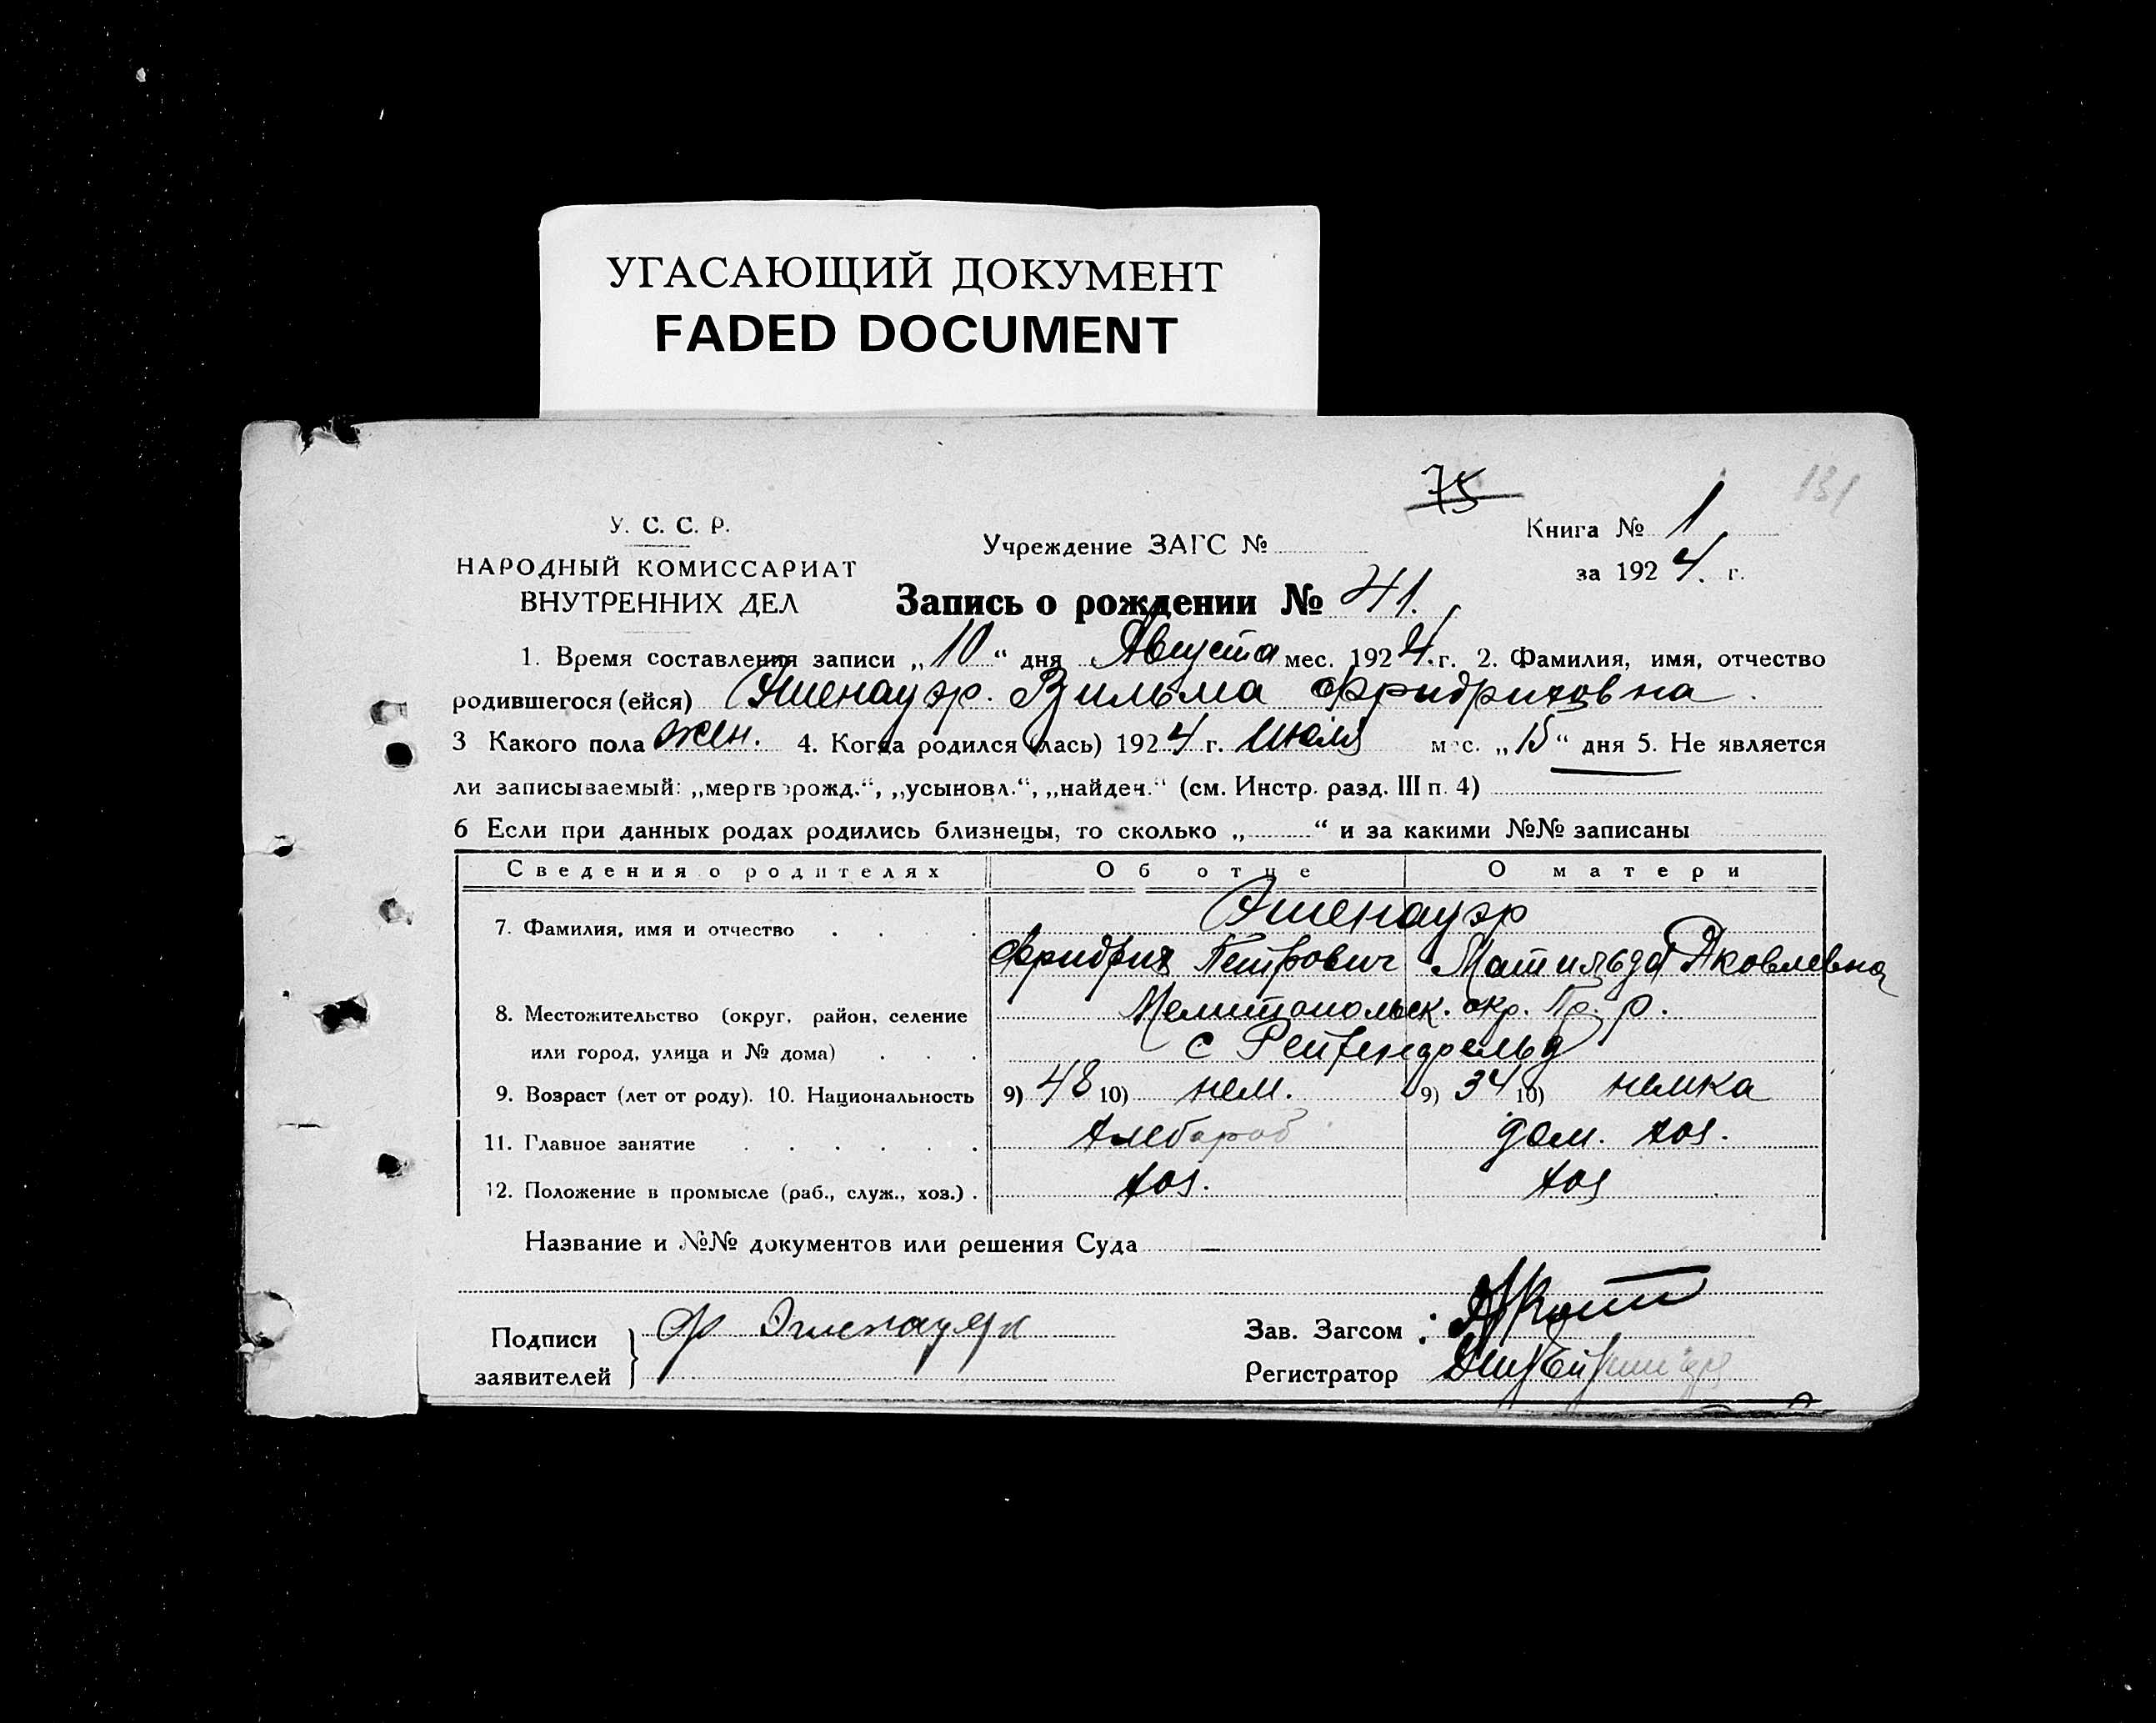 УГАСАЮЩИЙ ДОКУМЕНТ
FADED DOCUMENT
75
131
У. С. С. Р.
НАРОДНЫЙ КОМИССАРИАТ
ВНУТРЕННИХ ДЕЛ
Учреждение ЗАГС №
Книга № 1
за 1924. г.
Запись о рождении № 41.
1. Время составления записи „10“ дня Августа мес. 1924. г. 2. Фамилия, имя, отчество
родившегося (ейся) Эшенауэр. Вильма Фридриховна
3 Какого пола жен. 4. Когда родился (лась) 1924 г. Июля мес. „15“ дня 5. Не является
ли записываемый: „мертворожд.“, „усыновл.“, „найден.“ (см. Инстр. разд. III п. 4)
6 Если при данных родах родились близнецы, то сколько „ “ и за какими №№ записаны
Сведения о родителях Об отце О матери
7. Фамилия, имя и отчество Эшенауэр
Фридрих Петрович Матильда Яковлевна
8. Местожительство (округ, район, селение Мелитопольск. окр. Пр. р.
или город, улица и № дома) с Рейхенфельд
9. Возраст (лет от роду). 10. Национальность 9) 48 10) нем. 9) 34 10) немка
11. Главное занятие хлебороб дом. хоз.
12. Положение в промысле (раб., служ., хоз.) хоз. хоз
Название и №№ документов или решения Суда —
Подписи заявителей } Ф Эшенауер
Зав. Загсом :
Регистратор